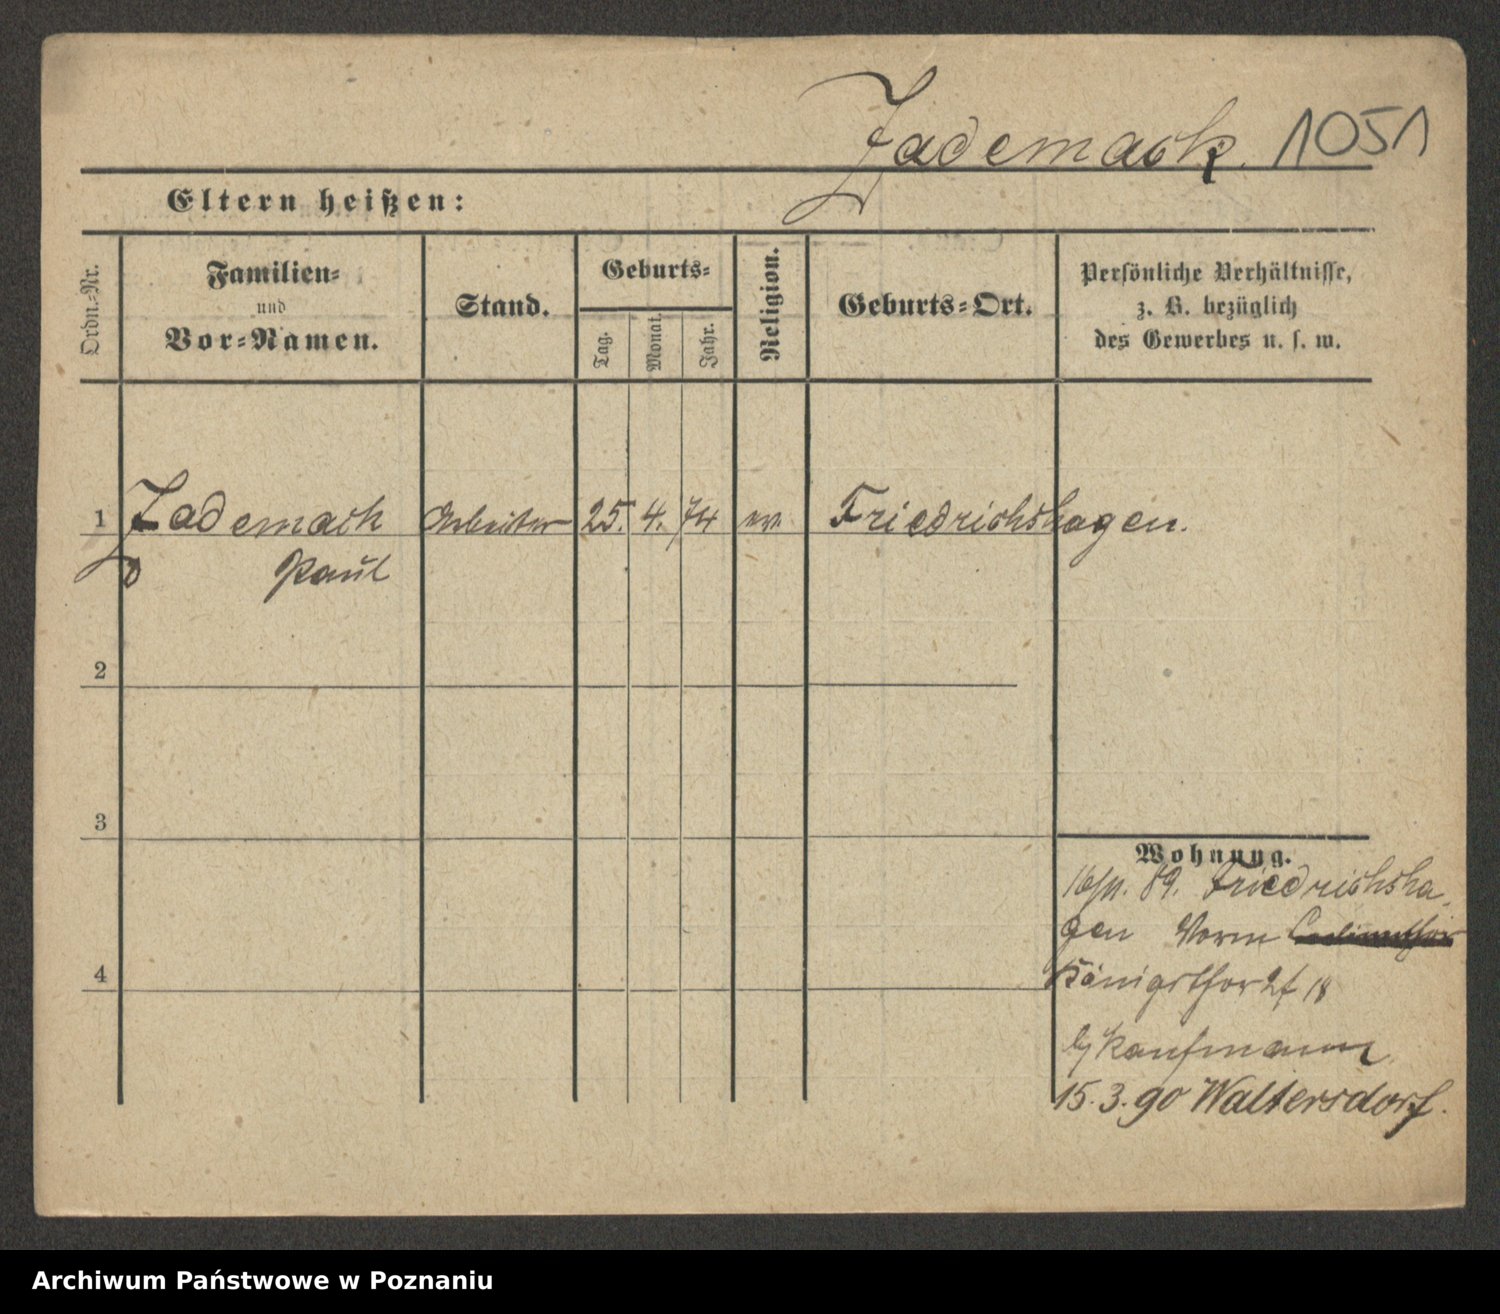 Zademack. 1051
Eltern heißen:
Ordn.-Nr.
Familien-
und
Vor-Namen.
Stand.
Geburts-
Tag.
Monat.
Jahr.
Religion.
Geburts-Ort.
Persönliche Verhältnisse,
z. B. bezüglich
des Gewerbes u. s. w.
1 Zademack Arbeiter 25. 4. 74 ev. Friedrichshagen.
Paul
2
3
Wohnung.
89. Friedrichsha-
gen Vorm
4
Königsthor 18
b/ Kaufmann.
15. 3. 90 Waltersdorf.
Archiwum Państwowe w Poznaniu